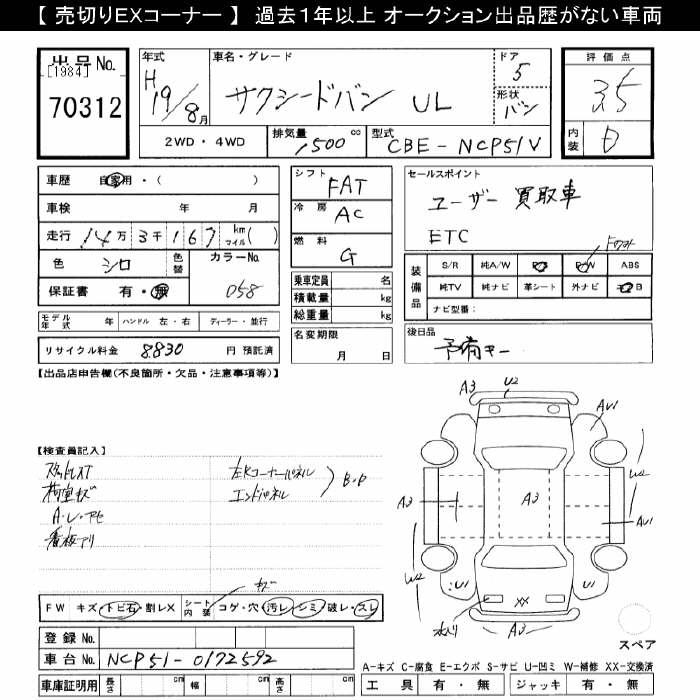 【 売切りEXコーナー 】 過去1年以上 オークション出品歴がない車両
出品 No.
[1984]
70312
年式
H 19/8月
車名・グレード
サクシードバン UL
ドア
5
形状
バン
2WD・4WD
排気量
1500 cc
型式
CBE-NCP51V
評価点
3.5
内装
D
車歴 自家用・( )
車検 年 月
走行 14万 3千 1 6 7 km マイル ( )
色 シロ 色替 カラーNo. 058
保証書 有・無
モデル年式 年 ハンドル 左・右 ディーラー・並行
リサイクル料金 8830 円 預託済
シフト FAT
冷房 AC
燃料 G
乗車定員 名
積載量 kg
総重量 kg
名変期限
月 日
セールスポイント
ユーザー買取車
ETC
装備品
S/R 純A/W P/S P/W ABS
純TV 純ナビ 革シート 外ナビ エアB
ナビ型番:
後日品
予備キー
【出品店申告欄(不良箇所・欠品・注意事項等)】
【検査員記入】
荷室キズ
A・L・アセ
看板アリ
左Rコーナーパネル
エンドパネル
B・P
キズ
FW キズ・トビ石・割レX シート内装 コゲ・穴・汚レ・シミ・破レ・スレ
登録 No.
車台 No. NCP51-0172592
車庫証明用 長さ cm 幅 cm 高さ cm
A3 U2
AU1
U2
A3
A3
AU1
U2
U1
U1
XX
A3
スペア
A-キズ C-腐食 E-エクボ S-サビ U-凹ミ W-補修 XX-交換済
工具 有・無 ジャッキ 有・無